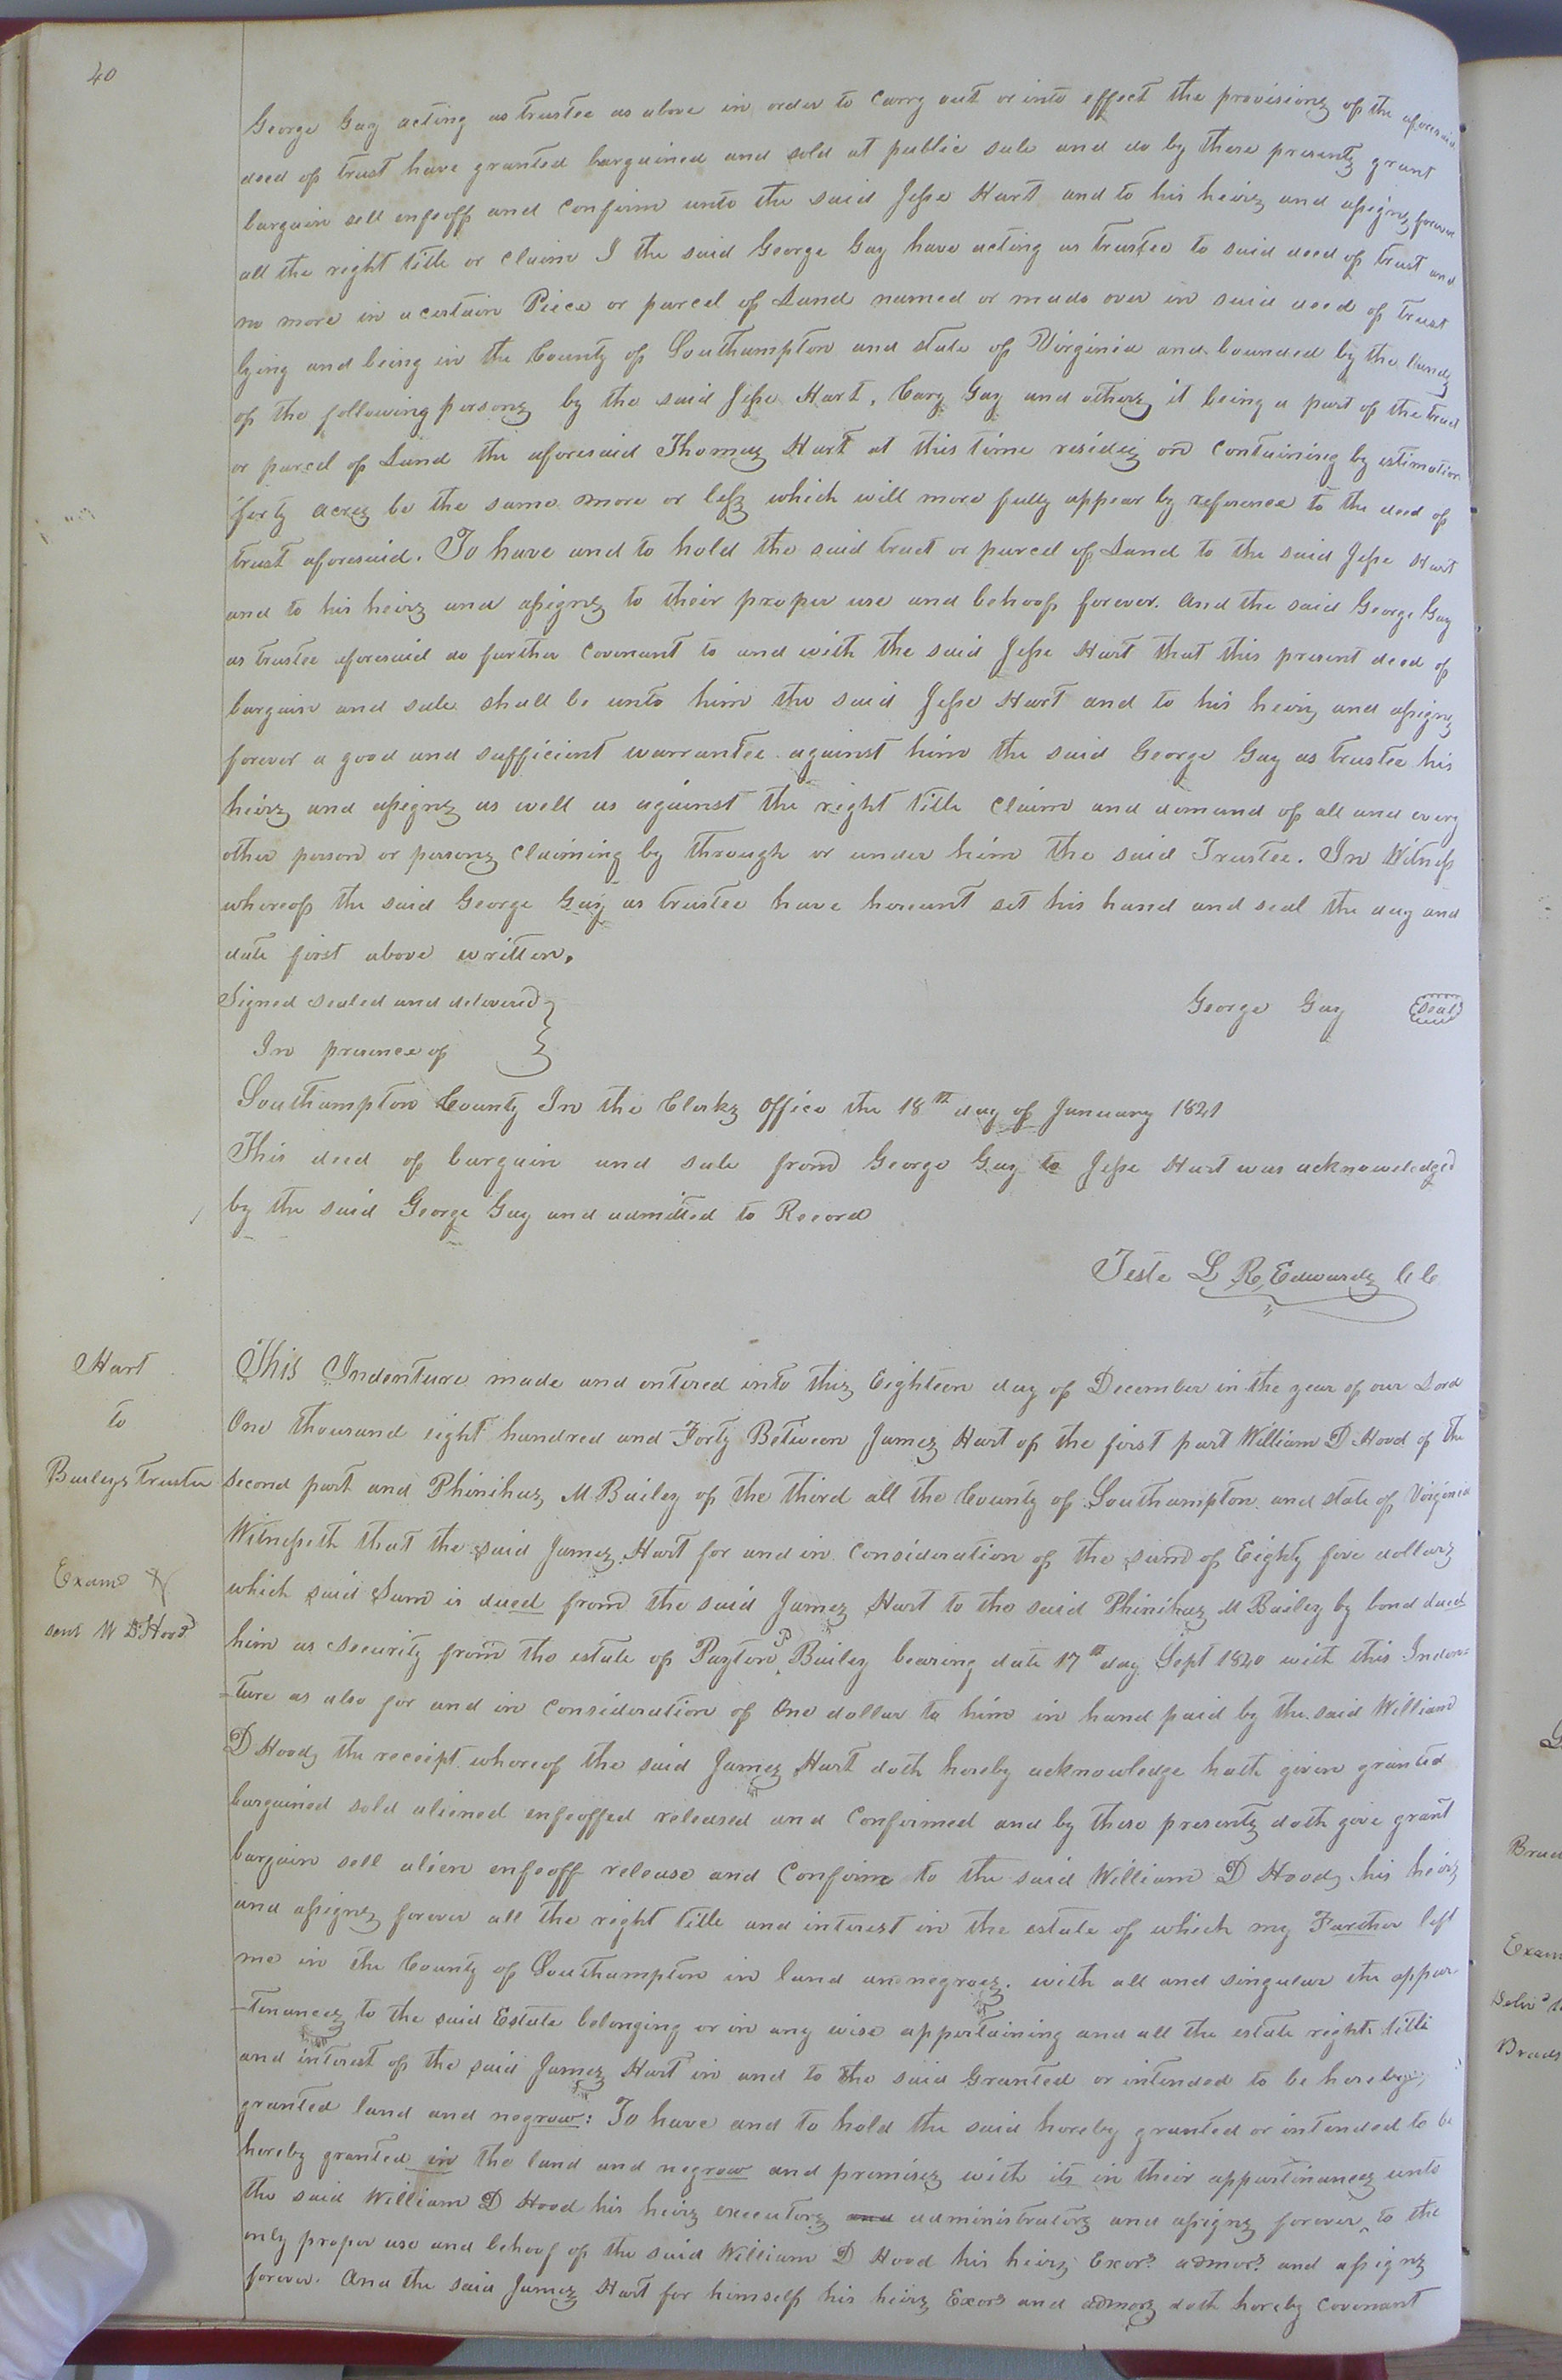 40
George Gay acting as trustee as above in order to carry out or into effect the provisions of the aforesaid
deed of trust have granted bargained and sold at public sale and do by these presents grant
bargain sell enfeoff and confirm unto the said Jesse Hart and to his heirs and assigns forever
all the right title or claim I the said George Gay have acting as trustee to said deed of trust and
no more in a certain Piece or parcel of Land named or made over in said deed of trust
lying and being in the County of Southampton and state of Virginia and bounded by the lands
of the following persons by the said Jesse Hart, Cary Gay and others it being a part of the tract
or parcel of Land the aforesaid Thomas Hart at this time resides on containing by estimation
forty acres be the same more or less which will more fully appear by reference to the deed of
trust aforesaid. To have and to hold the said tract or parcel of Land to the said Jesse Hart
and to his heirs and assigns to their proper use and behoof forever. And the said George Gay
as trustee aforesaid do further covenant to and with the said Jesse Hart that this present deed of
bargain and sale shall be unto him the said Jesse Hart and to his heirs and assigns
forever a good and sufficient warrantee against him the said George Gay as trustee his
heirs and assigns as well as against the right title claim and demand of all and every
other person or persons claiming by through or under him the said Trustee. In Witness
whereof the said George Gay as trustee have hereunt set his hand and seal the day and
date first above written.
Signed sealed and delivered
George Gay (Seal)
In presence of
Southampton County In the Clerks Office the 18th day of January 1841
This deed of bargain and sale from George Gay to Jesse Hart was acknowledged
by the said George Gay and admitted to Record
Teste L R Edwards CC
Hart
to
Baileys Trustee
Examd
sent W D Hood
This Indenture made and entered into this Eighteen day of December in the year of our Lord
One thousand eight hundred and Forty Between James Hart of the first part William D Hood of the
second part and Phinihas M Bailey of the third all the County of Southampton and state of Virginia
Witnesseth that the said James Hart for and in consideration of the sum of Eighty five dollars
which said Sum is dued from the said James Hart to the said Phinihas M Bailey by bond dued
him as security from the estate of Payton P Bailey bearing date 17th day Sept 1840 with this Inden=
=ture as also for and in consideration of One dollar to him in hand paid by the said William
D Hood, the receipt whereof the said James Hart doth hereby acknowledge hath given granted
bargained sold aliened enfeoffed released and confirmed and by these presents doth give grant
bargain sell alien enfeoff release and confirm to the said William D Hood, his heirs
and assigns forever all the right title and interest in the estate of which my Farther left
me in the County of Southampton in land an negroes. with all and singular the appur-
-tenances to the said Estate belonging or in any wise appertaining and all the estate right title
and interest of the said James Hart in and to the said Granted or intended to be hereby
granted land and negrow: To have and to hold the said hereby granted or intended to be
hereby granted in the land and negrow and premises with its in their appurtinances unto
the said William D Hood his heirs executors and administrators and assigns forever, to the
only proper use and behoof of the said William D Hood his heirs Exors admors and assigns
forever. And the said James Hart for himself his heirs Exors and admors doth hereby covenant
Exam